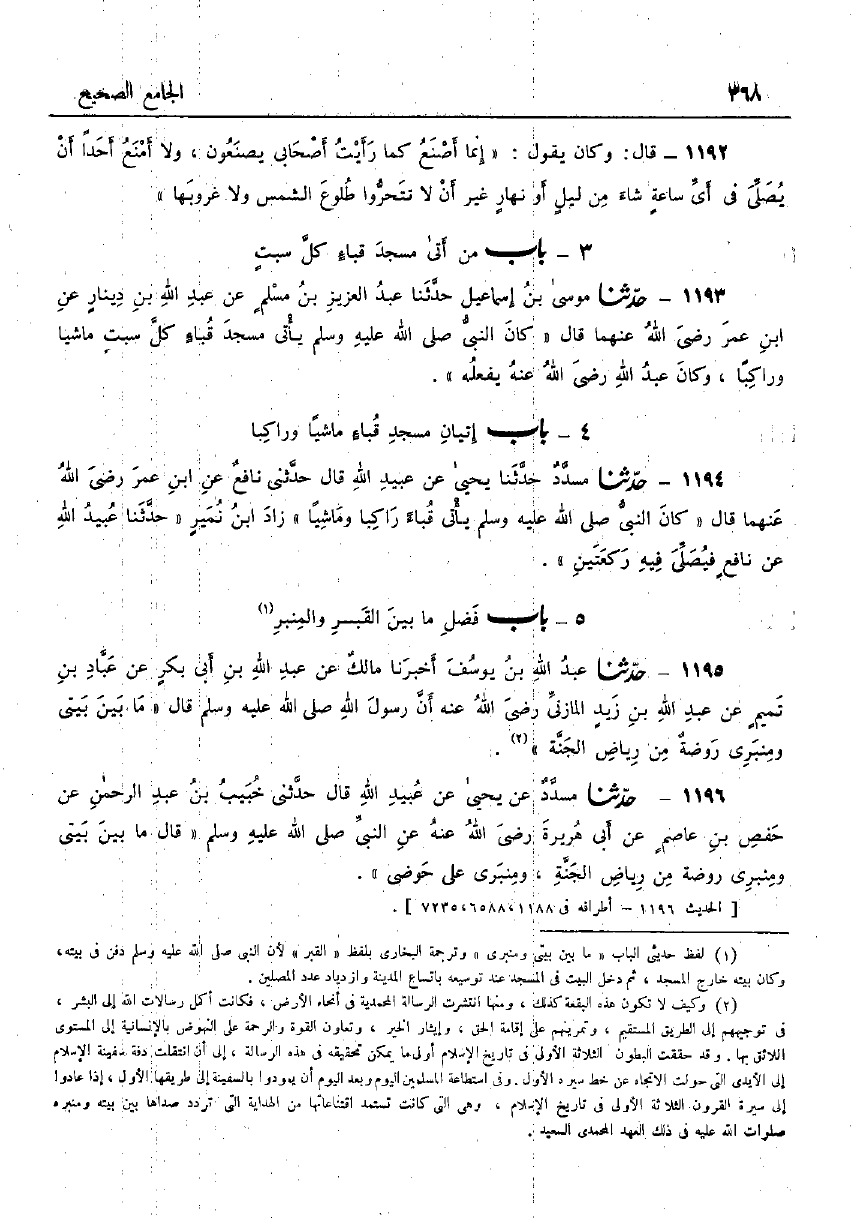 ٣٦٨ الجامع الصحيح
١١٩٢ – قال: وكان يقول : « إنما أَصْنَعُ كما رَأَيْتُ أَصْحَابى يصنَعُون ، ولا أَمْنَعُ أَحَداً أَنْ
يُصَلِّىَ فى أَىِّ ساعةٍ شاءَ مِن ليلٍ أَو نهارٍ غير أَنْ لا تتَحرُّوا طُلوعَ الشمس ولا غروبَها »
٣ – باب من أَتىٰ مسجدَ قباءٍ كلَّ سبتٍ
١١٩٣ – حدّثنا موسىٰ بنُ إسماعيل حدَّثَنا عبدُ العزيز بنُ مسْلمٍ عن عبدِ اللهِ بنِ دِينارٍ عنِ
ابنِ عمرَ رضىَ اللهُ عنهما قال « كانَ النبىُّ صلى الله عليهِ وسلم يأْتى مسجدَ قُباءٍ كلَّ سبتٍ ماشيا
وراكِبًا ، وكانَ عبدُ اللهِ رضىَ اللهُ عنهُ يفعلُه » .
٤ – باب إتيانِ مسجدِ قُباءٍ ماشيًا وراكِبا
١١٩٤ – حدّثنا مسدَّدٌ حدَّثَنا يحيىٰ عن عبيدِ اللهِ قال حدَّثنى نافعٌ عنِ ابنِ عمرَ رضىَ اللهُ
عَنهما قال « كانَ النبىُّ صلى الله عليه وسلم يأْتى قُباءً رَاكِبا ومَاشِيًا » زادَ ابنُ نُمَيرٍ « حدَّثَنا عُبيدُ اللهِ
عن نافعٍ فيُصَلِّىَ فِيهِ رَكعَتَينِ » .
٥ – باب فَضلِ ما بينَ القَبرِ والمِنبرِ(١)
١١٩٥ – حدّثنا عبدُ اللهِ بنُ يوسُفَ أَخبرَنا مالكٌ عن عبدِ اللهِ بنِ أَبى بكرٍ عن عَبَّادِ بنِ
تَميمٍ عن عبدِ اللهِ بنِ زَيدٍ المازنىِّ رضىَ اللهُ عنه أَنَّ رسولَ اللهِ صلى الله عليه وسلم قال « مَا بَينَ بَيتى
ومِنبَرِى رَوضةٌ مِن رِياضِ الجَنَّة »(٢) .
١١٩٦ – حدّثنا مسدَّدٌ عن يحيىٰ عن عُبيدِ اللهِ قال حدَّثنى خُبَيبُ بنُ عبدِ الرحمٰنِ عن
حَفصِ بنِ عاصمٍ عن أَبى هُريرةَ رضىَ اللهُ عنهُ عنِ النبىِّ صلى الله عليهِ وسلم « قال ما بينَ بَيتى
ومِنبرى روضة مِن رِياضِ الجَنَّةِ ، ومِنبَرى على حَوضى » .
[ الحديث ١١٩٦ – أطرافه فى ١١٨٨، ٦٥٨٨، ٧٢٣٥ ] .
(١) لفظ حديثى الباب « ما بين بيتى ومنبرى » وترجمة البخارى بلفظ « القبر » لأن النبى صلى الله عليه وسلم دفن فى بيته،
وكان بيته خارج المسجد ، ثم دخل البيت فى المسجد عند توسيعه باتساع المدينة وازدياد عدد المصلين .
(٢) وكيف لا تكون هذه البقعة كذلك ، ومنها انتشرت الرسالة المحمدية فى أنحاء الأرض ، فكانت أكمل رسالات الله إلى البشر ،
فى توجيههم إلى الطريق المستقيم ، وتمرينهم على إقامة الحق ، وإيثار الخير ، وتعاون القوة والرحمة على النهوض بالإنسانية إلى المستوى
اللائق بها . وقد حققت البطون الثلاثة الأولى فى تاريخ الإسلام أولى ما يمكن تحقيقه فى هذه الرسالة ، إلى أن انتقلت دفة سفينة الإسلام
إلى الأيدى التى حولت الاتجاه عن خط سيره الأول . وفى استطاعة المسلمين اليوم وبعد اليوم أن يعودوا بالسفينة إلى طريقها الأول ، إذا عادوا
إلى سيرة القرون الثلاثة الأولى فى تاريخ الإسلام ، وهى التى كانت تستمد اقتناعاتها من الهداية التى تردد صداها بين بيته ومنبره
صلوات الله عليه فى ذلك العهد المحمدى السعيد .